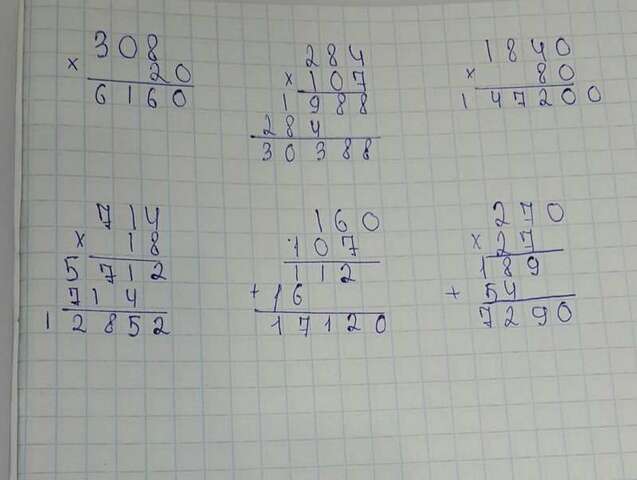 308
× 20
6160
284
× 107
1988
284
30388
1840
× 80
147200
714
× 18
5712
714
12852
160
107
112
+ 16
17120
270
× 27
189
+ 54
7290